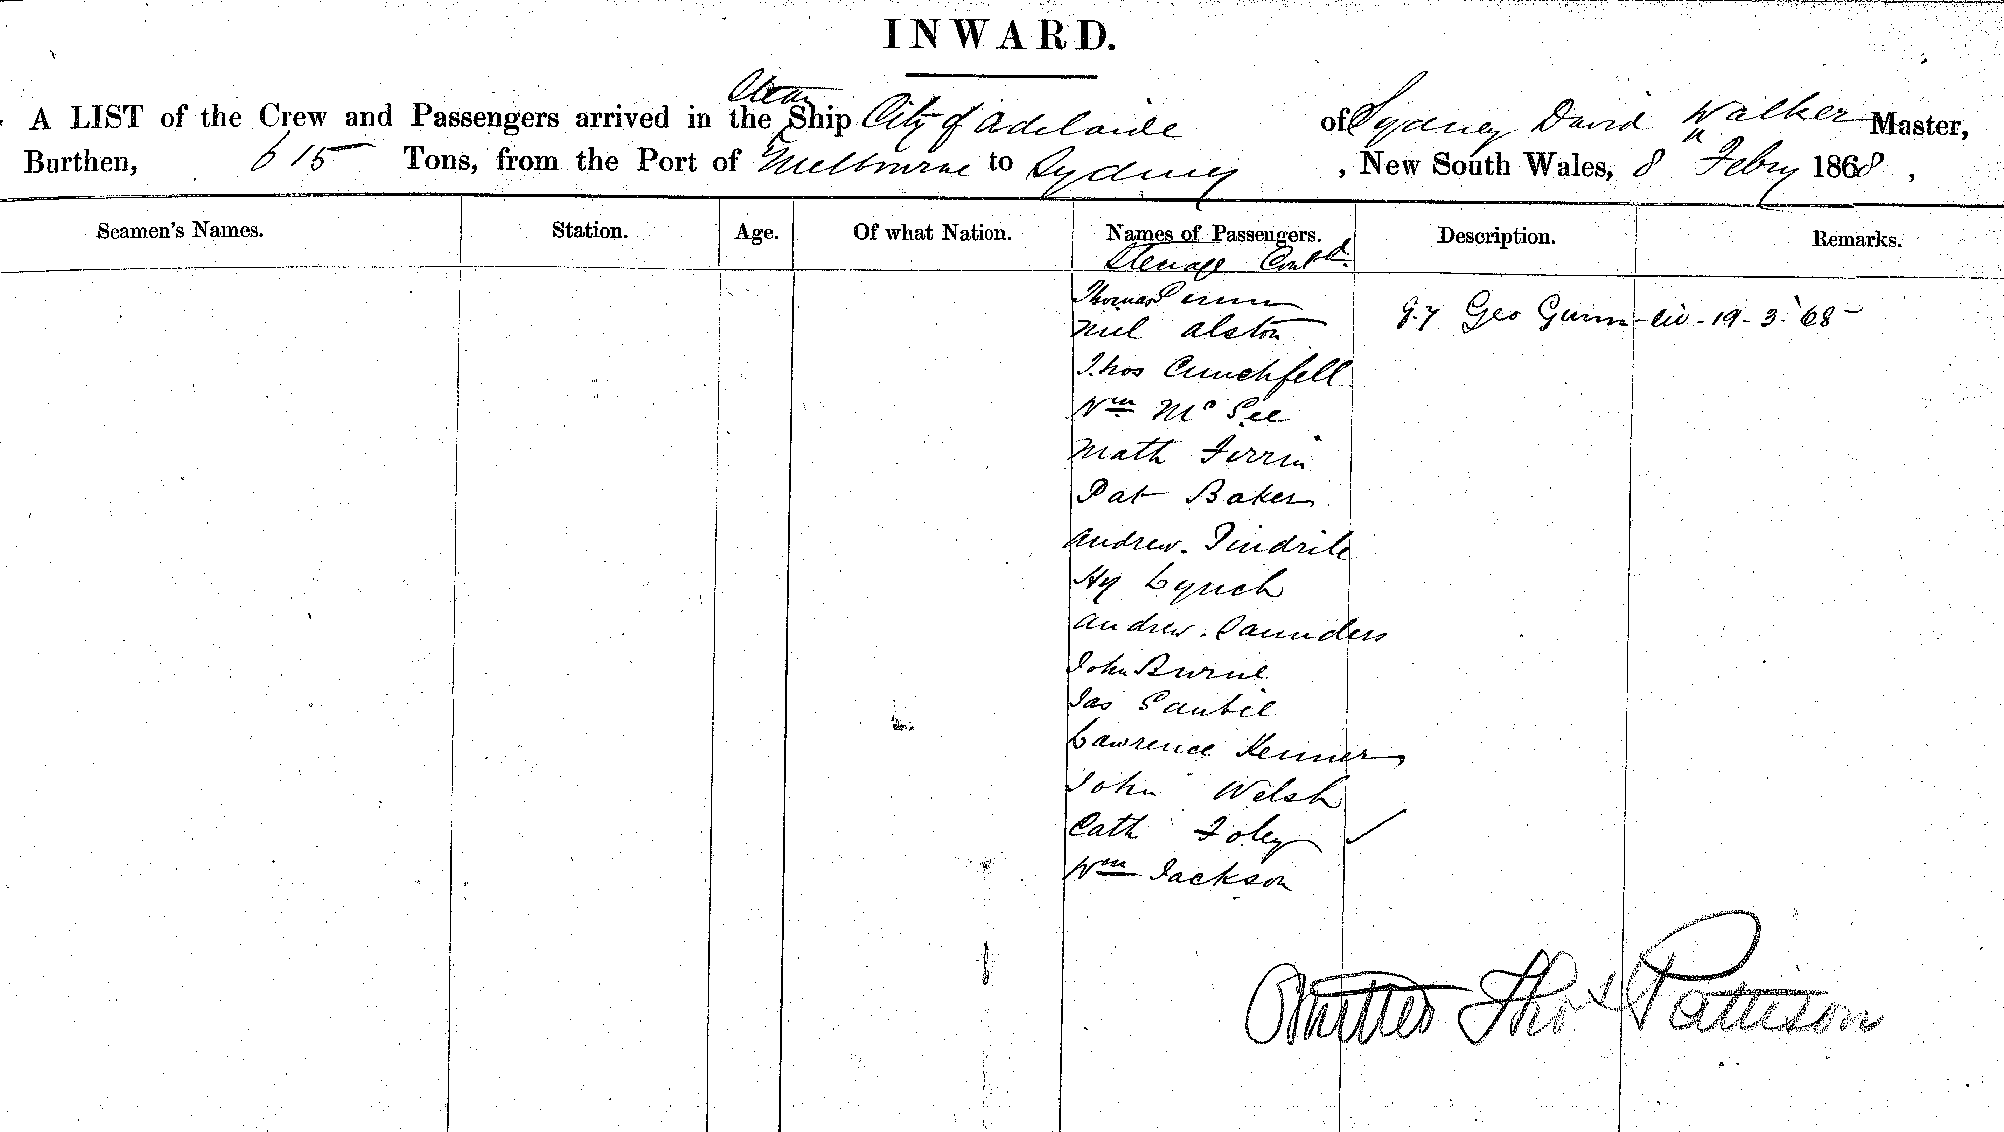 INWARD.
A LIST of the Crew and Passengers arrived in the Steam Ship City of Adelaide of Sydney David Walker Master,
Burthen, 615 Tons, from the Port of Melbourne to Sydney , New South Wales, 8 Febry 1868 ,
Seamen's Names. Station. Age. Of what Nation. Names of Passengers. Description. Remarks.
Steerage Contd.
Thomas
Niel Alston Geo Gunn 19-3-'68
Thos Crunchfell
Wm Mc See
Math Ferrin
Pat Baker
Andrew. Tindrile
Hy Lynch
Andrew. Saunders
John Burne
Jas
Lawrence Kenner
John Welsh
Cath Foley ✓
Wm Jackson
Omitted Thos Pattison